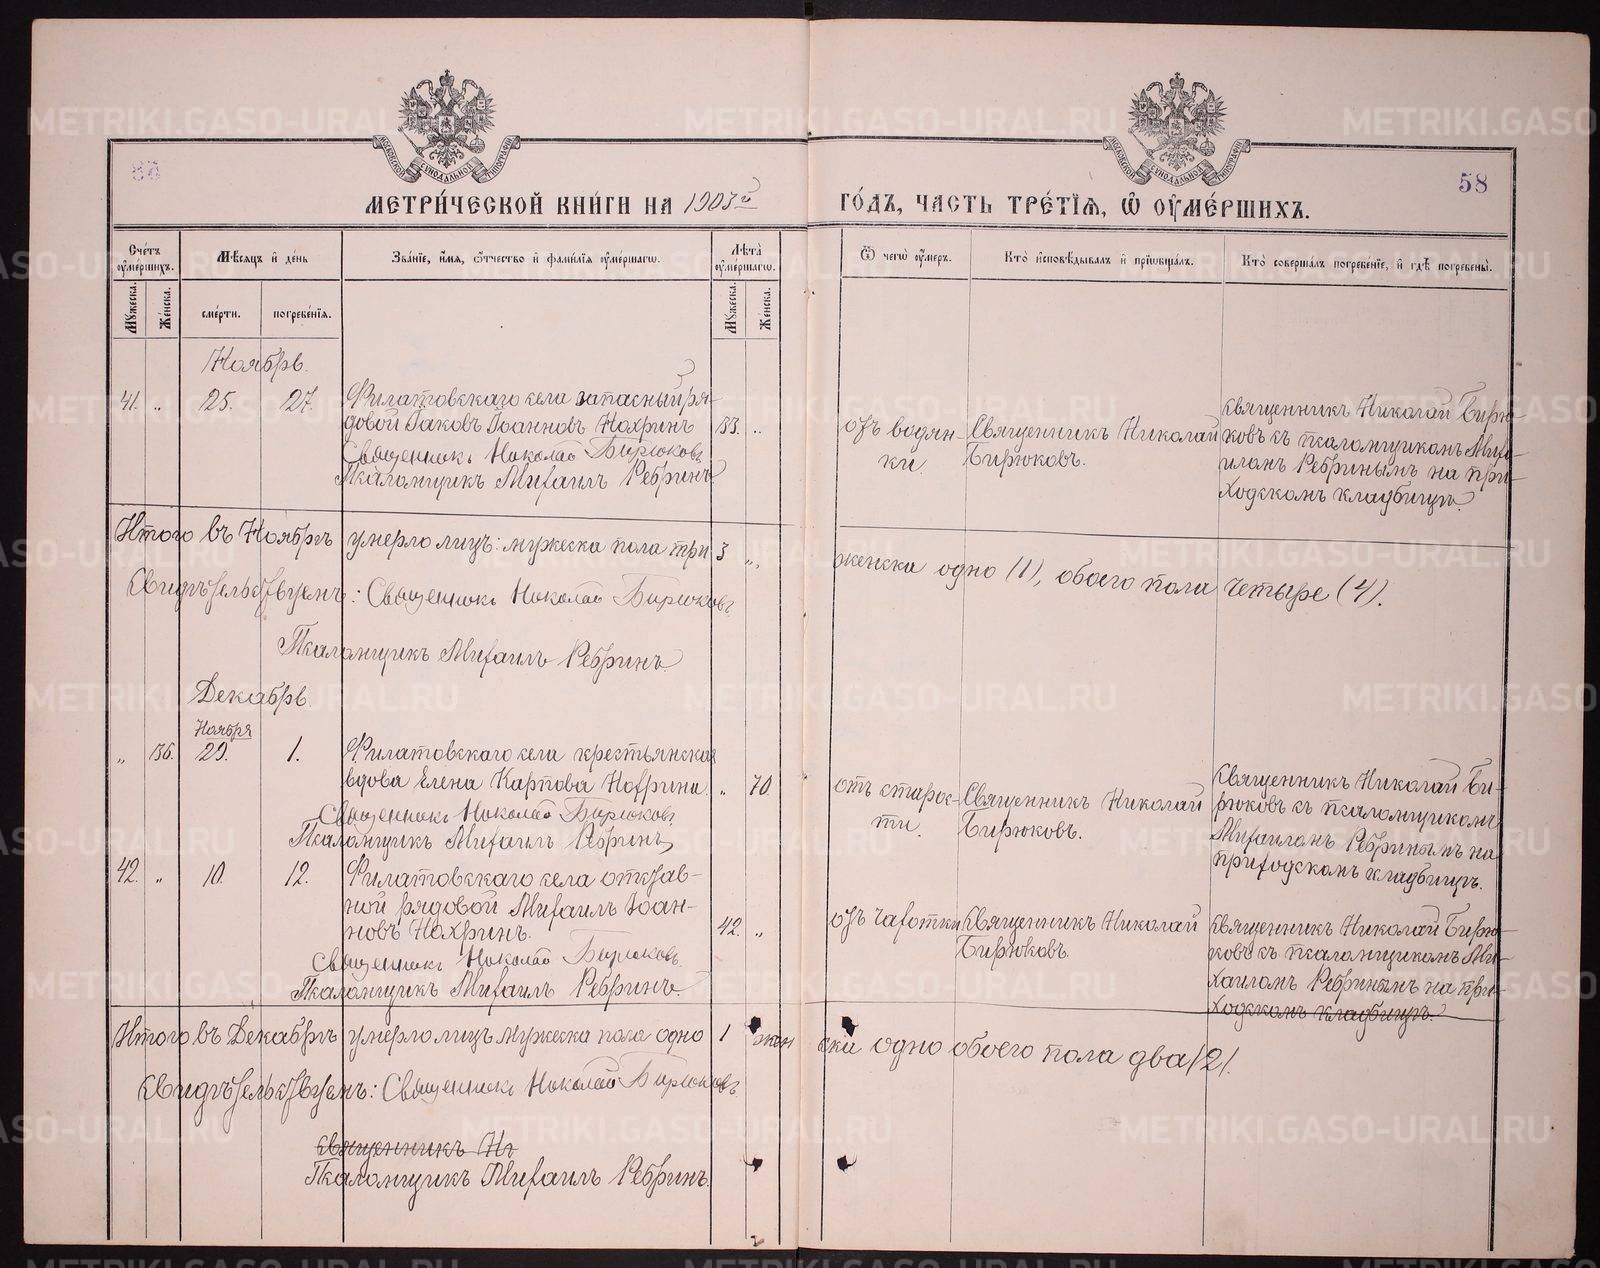 58
МЕТРИ́ЧЕСКОЙ КНИ́ГИ НА 1903й
ГО́ДЪ, ЧАСТЬ ТРЕ́ТІѦ, Ѿ ОУМЕ́РШИХЪ.
Сче́тъ оуме́ршихъ.
Мѣ́сяцъ и҆ де́нь
Зва́нїе, и҆́мѧ, ѻ҆́тчество и҆ фами́лїѧ оуме́ршагѡ.
Лѣ́та оуме́ршагѡ.
Ѿ чегѡ̀ оу́меръ.
Кто̀ и҆сповѣ́дывалъ и҆ прїѡбща́лъ.
Кто̀ соверша́лъ погребе́нїе, и҆ гдѣ̀ погребены̀.
Мужеска.
Же́нска.
сме́рти.
погребе́нїѧ.
Мужеска.
Же́нска.
Ноябрь.
41. „ 25. 27. Филатовскаго села запасный ря-
довой Іаковъ Іоанновъ Нохринъ 33. „
Священникъ Николай Бирюковъ
Псаломщикъ Михаилъ Ребринъ.
отъ водян-
ки.
Священникъ Николай
Бирюковъ.
Священникъ Николай Бирю-
ковъ съ псаломщикомъ Миха-
иломъ Ребринымъ на при-
ходскомъ кладбищѣ.
Итого въ Ноябрѣ умерло лицъ: мужеска пола три 3 „
женска одно (1), обоего пола четыре (4).
Свидѣтельствуемъ: Священникъ Николай Бирюковъ
Псаломщикъ Михаилъ Ребринъ.
Декабрь.
Ноября
„ 36. 29. 1. Филатовскаго села крестьянская
вдова Елена Карпова Нохрина. „ 70.
Священникъ Николай Бирюковъ
Псаломщикъ Михаилъ Ребринъ
отъ старос-
ти.
Священникъ Николай
Бирюковъ.
Священникъ Николай Би-
рюковъ съ псаломщикомъ
Михаиломъ Ребринымъ на
приходскомъ кладбищѣ.
42. „ 10. 12. Филатовскаго села отстав-
ной рядовой Михаилъ Іоан-
новъ Нохринъ. 42. „
Священникъ Николай Бирюковъ.
Псаломщикъ Михаилъ Ребринъ.
отъ чахотки
Священникъ Николай
Бирюковъ.
Священникъ Николай Бирю-
ковъ съ псаломщикомъ Ми-
хаиломъ Ребринымъ на при-
ходскомъ кладбищѣ.
Итого въ Декабрѣ умерло лицъ мужеска пола одно 1 жен
ски одно обоего пола два (2).
Свидѣтельствуемъ: Священникъ Николай Бирюковъ.
священникъ Ни
Псаломщикъ Михаилъ Ребринъ.
METRIKI.GASO-URAL.RU